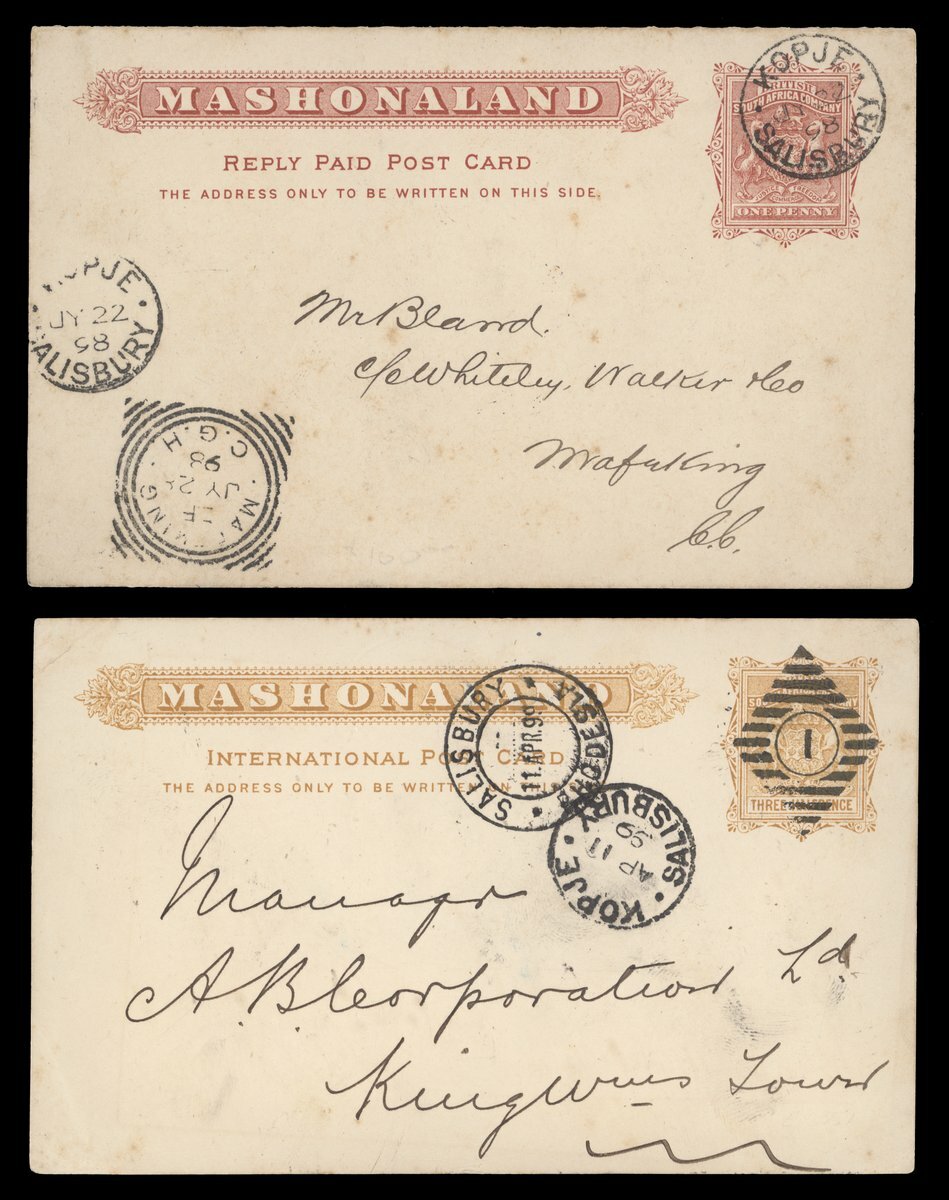 MASHONALAND
REPLY PAID POST CARD
THE ADDRESS ONLY TO BE WRITTEN ON THIS SIDE.
BRITISH
SOUTH AFRICA COMPANY
JUSTICE COMMERCE FREEDOM
ONE PENNY
KOPJE
98
SALISBURY
KOPJE
JY 22
98
SALISBURY
Mr Bland.
C/o Whiteley, Walker & Co
Mafeking
C.C.
MAFEKING
JY
98
C.G.H
MASHONALAND
INTERNATIONAL POST CARD
THE ADDRESS ONLY TO BE WRITTEN ON
THREE HALFPENCE
1
SALISBURY
11 APR. 99
RHODESIA
KOPJE
AP 11
99
SALISBURY
Manager
A. B. Corporation Ld
King Wms Town